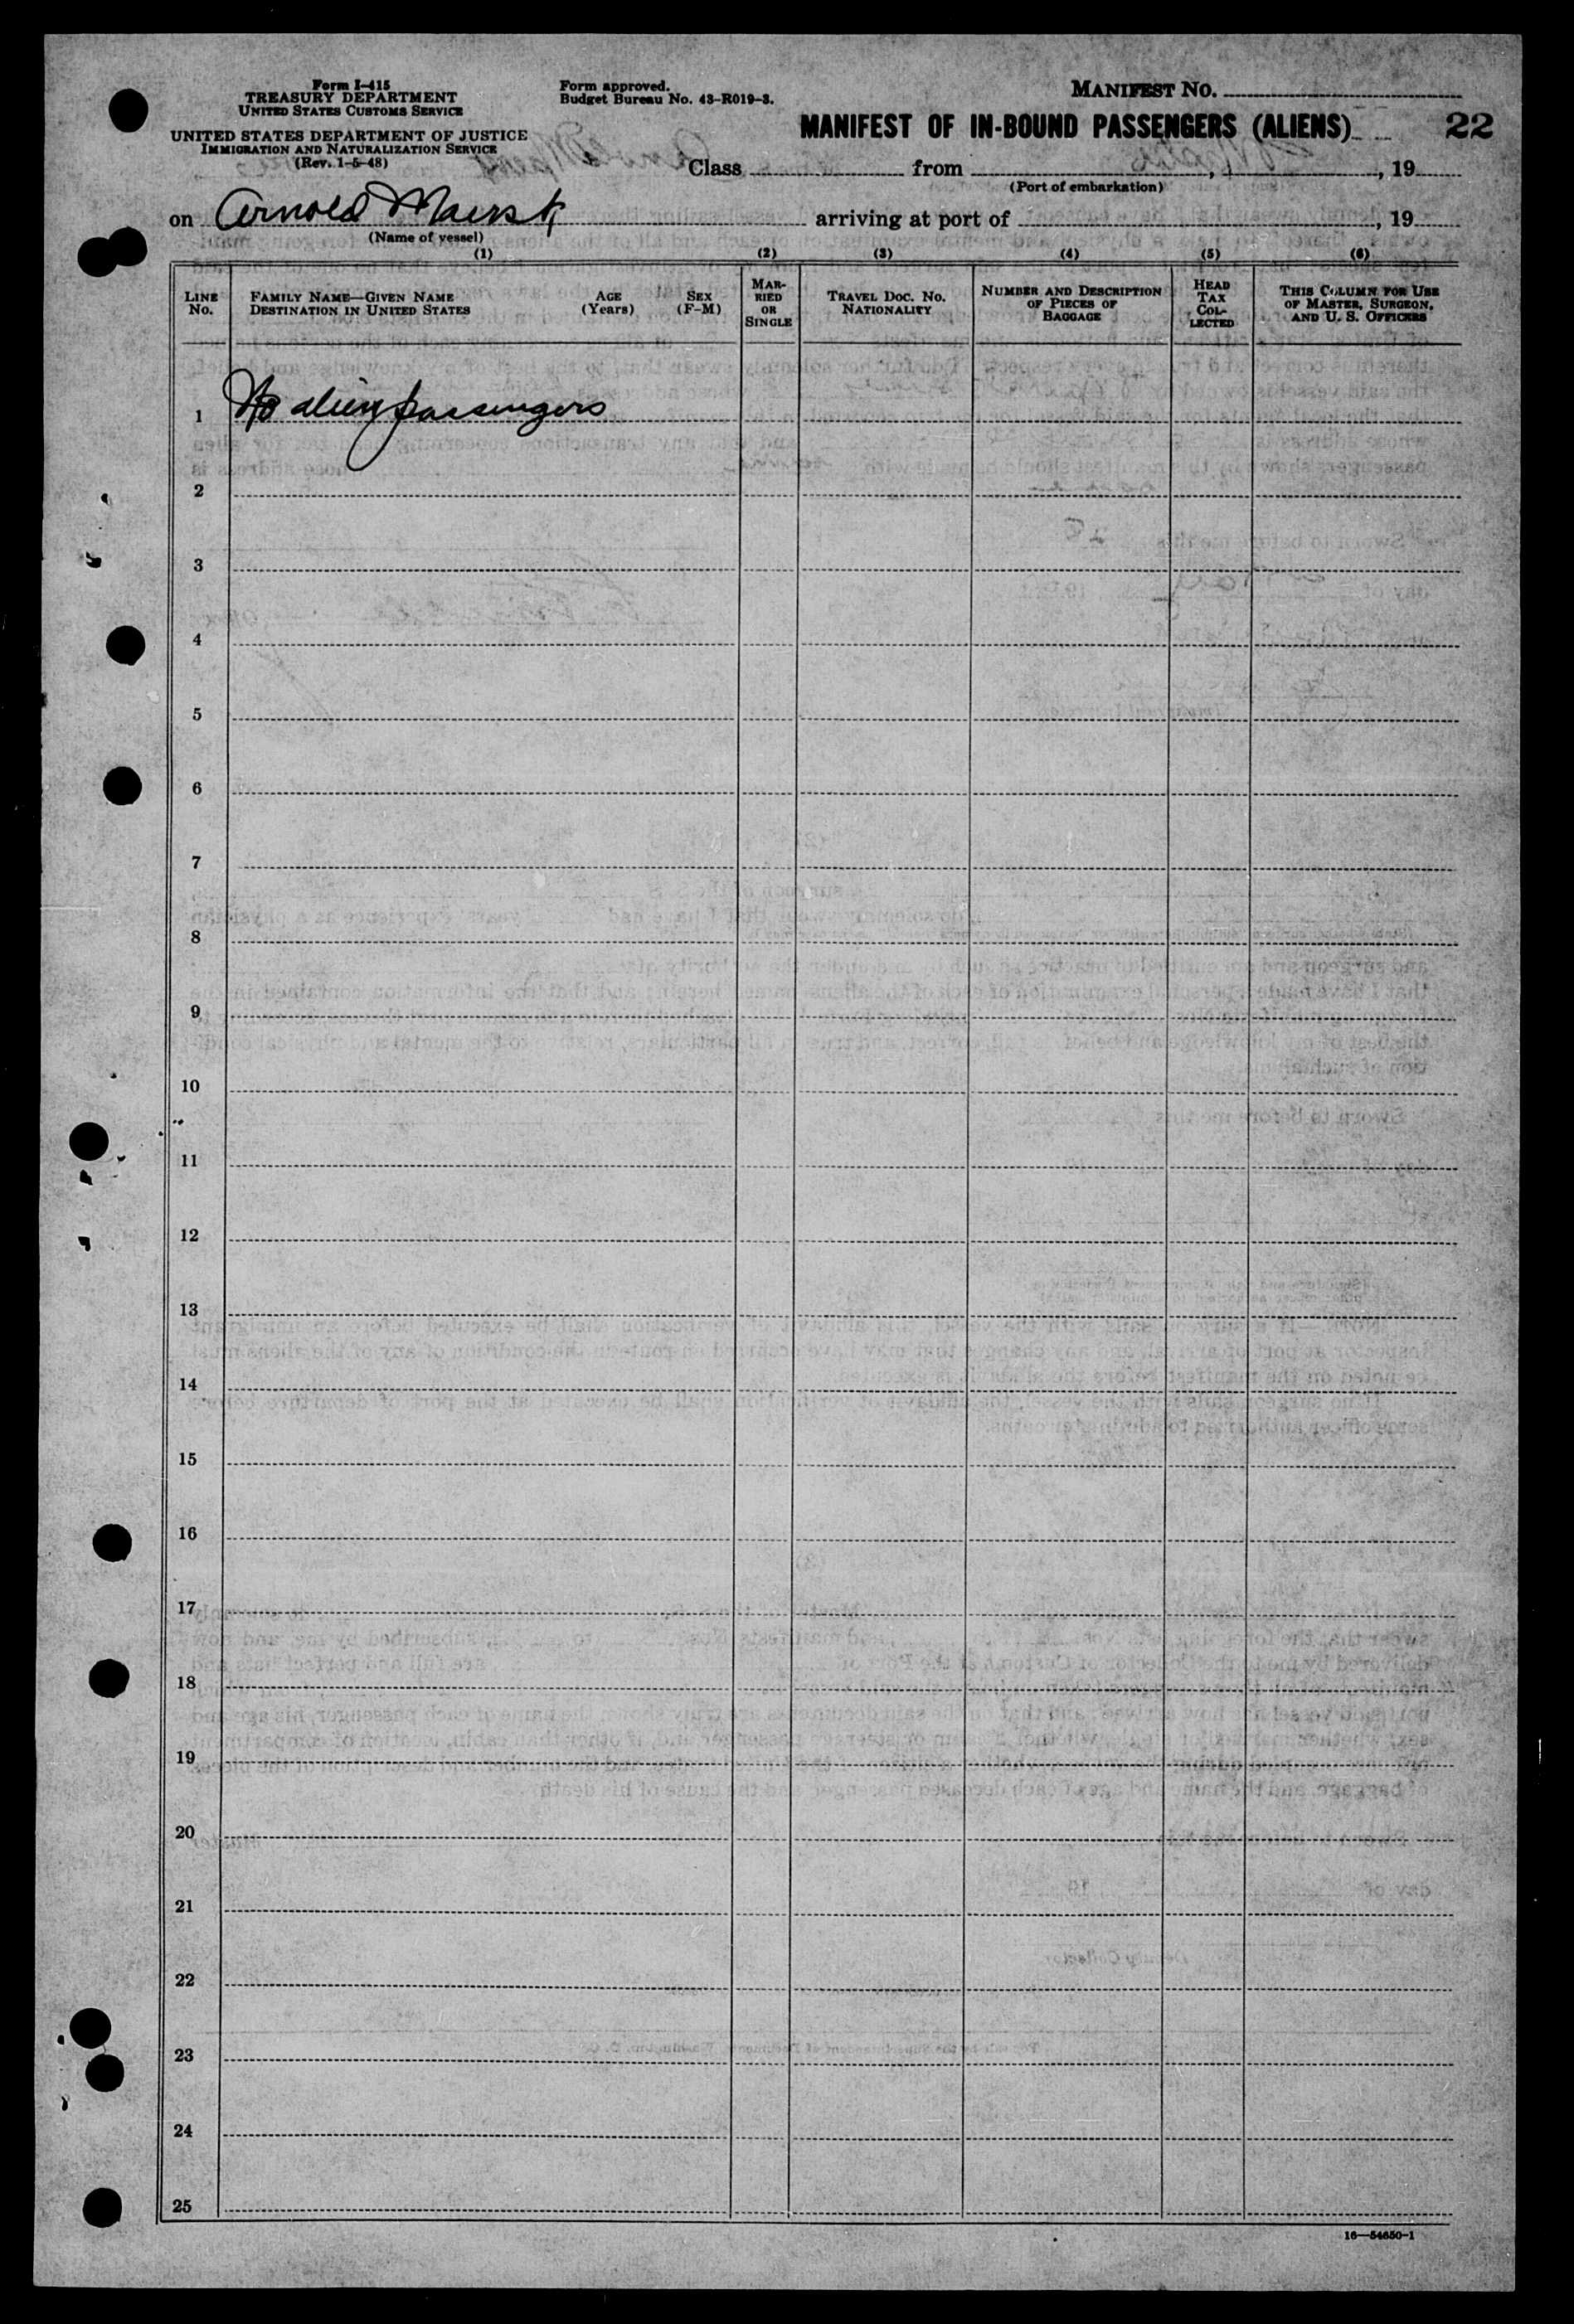 Form I-415
TREASURY DEPARTMENT
UNITED STATES CUSTOMS SERVICE
UNITED STATES DEPARTMENT OF JUSTICE
IMMIGRATION AND NATURALIZATION SERVICE
(Rev. 1-5-48)
Form approved.
Budget Bureau No. 43-R019-3.
MANIFEST NO.
MANIFEST OF IN-BOUND PASSENGERS (ALIENS) 22
Class from , , 19
(Port of embarkation)
on Arnold Maersk arriving at port of , 19
(Name of vessel)
(1) (2) (3) (4) (5) (6)
LINE No.
FAMILY NAME—GIVEN NAME
DESTINATION IN UNITED STATES
AGE (Years)
SEX (F-M)
MARRIED OR SINGLE
TRAVEL DOC. NO.
NATIONALITY
NUMBER AND DESCRIPTION
OF PIECES OF
BAGGAGE
HEAD
TAX
COL-
LECTED
THIS COLUMN FOR USE
OF MASTER, SURGEON,
AND U. S. OFFICERS
1 No alien passengers
2
3
4
5
6
7
8
9
10
11
12
13
14
15
16
17
18
19
20
21
22
23
24
25
16—54650-1